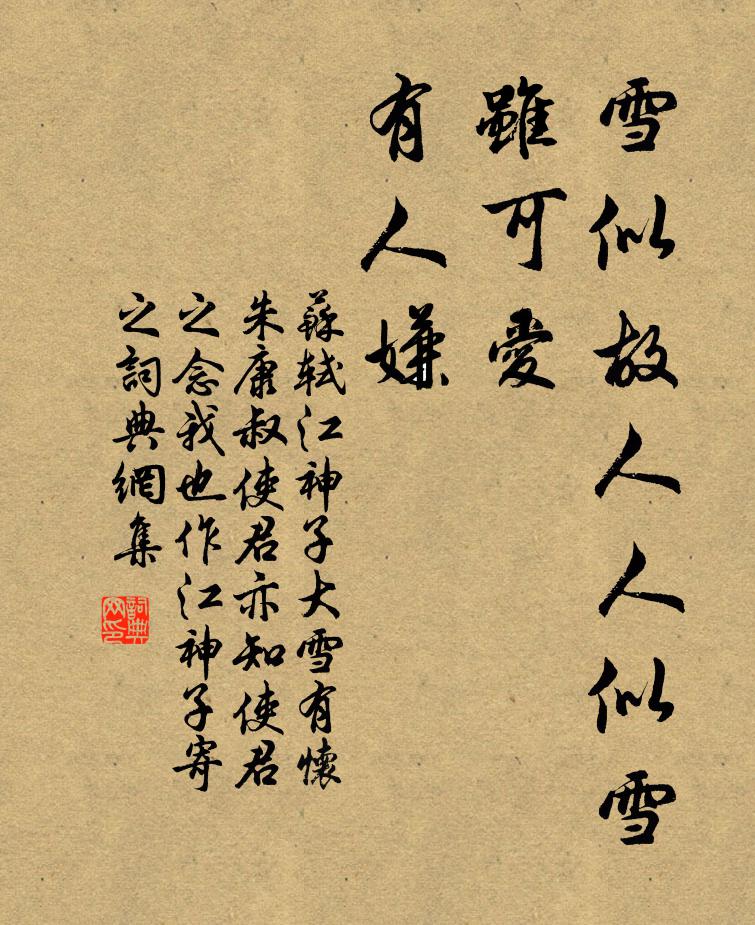 雪似故人人似雪
雖可愛
有人嫌
蘇軾江神子大雪有懷
朱康叔使君亦知使君
之念我也作江神子寄
之詞典網集
詞典
网印